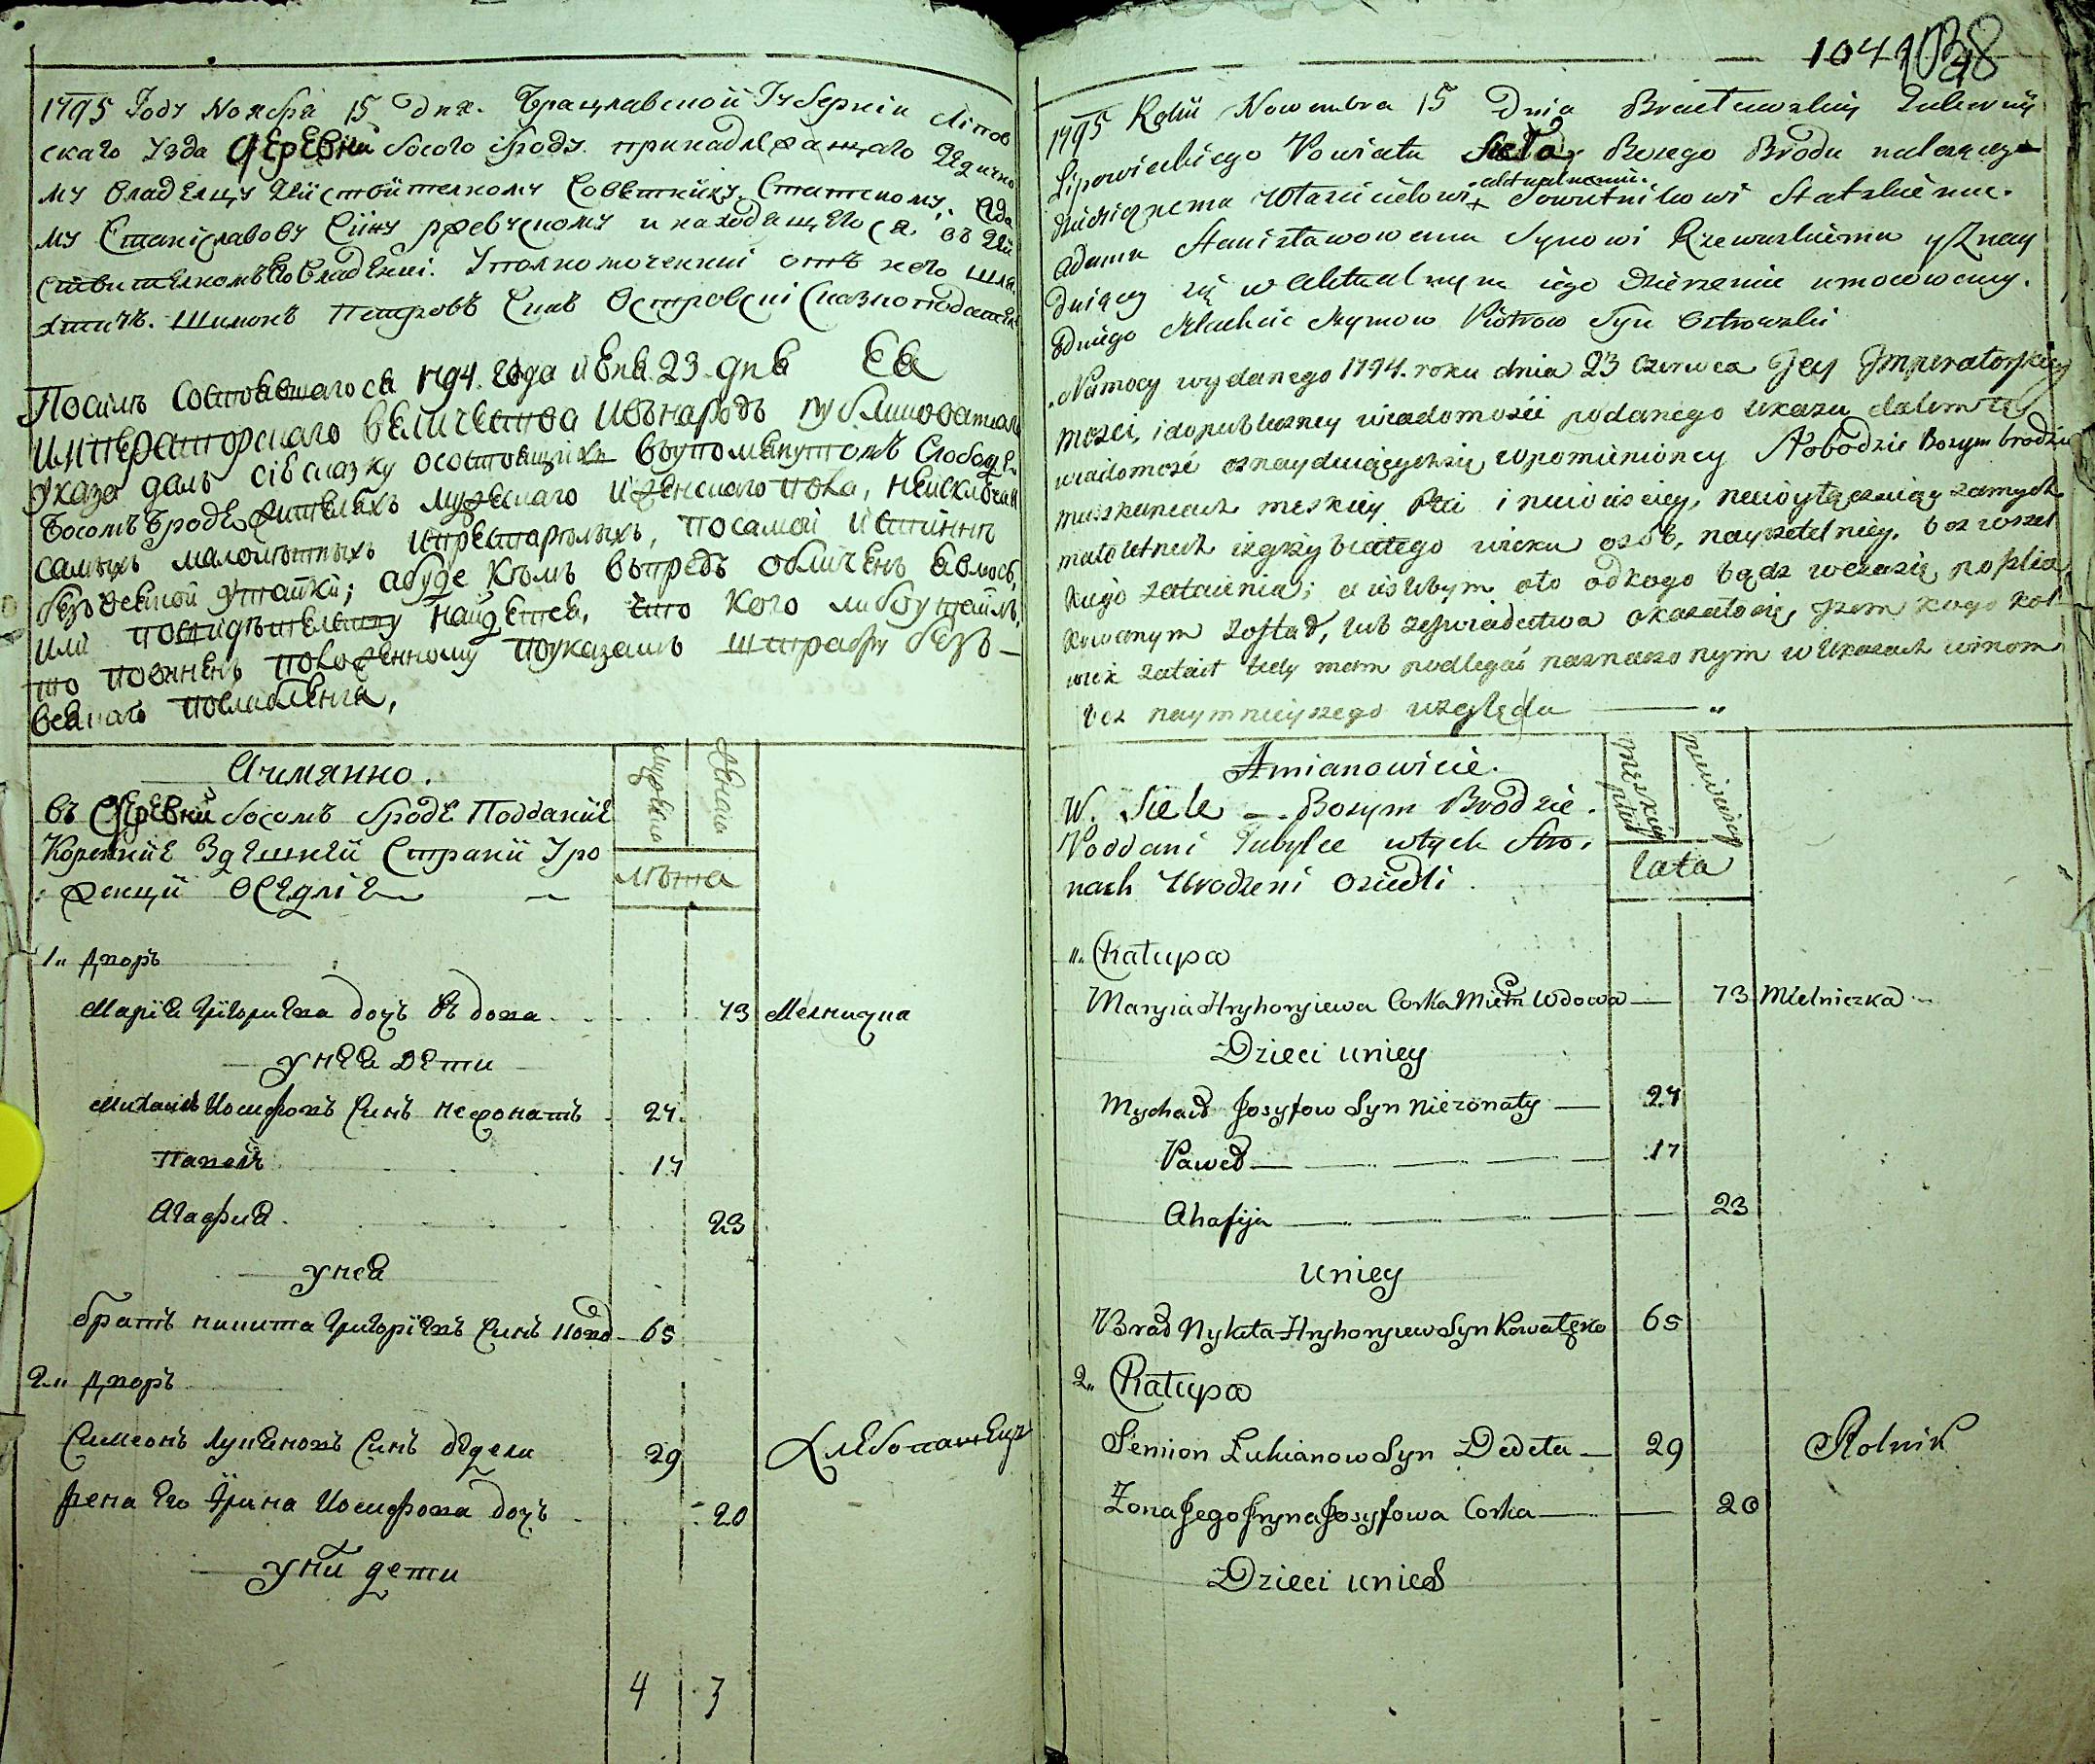 1795 Году Ноября 15 Дня. Брацлавской Губернии Липов
скаго Уезда Деревни босого броду принадлежащаго Дедично
му владелцу Действителному Советнику Статскому, Ада
му Станиславову Сину Ржевускому и находящегося въ Дей
ствителномъ Его владении. Уполномоченний отъ него шля
хтичъ. Шимонъ Петровъ Синъ Островски
Посилѣ Состоявшагося 1794. Года июня 23. дня Ея
Императорскаго величества ивънародъ публикованнаго
Указа далъ сию сказку осостоящихъ въупомянутомъ Слободе
Босомъ Броде жителяхъ мужескаго ижєнскаго пола, неисключая
самыхъ малолѣтныхъ ипрестарѣлыхъ, посамой истиннѣ
безъвсякой утайки; абуде кѣмъ впредь обличенъ явлюсь,
или посвидѣтелству найдется, что кого либо утаилъ,
то повиненъ положенному поуказамъ штрафу безъ
всякаго послабления,
Аимянно.
въ Деревни босомъ броде Поддание
Коренние Здешней Страни Уро
женци оседлие
мужеска
женска
лѣта
1„ Дворъ
Мария Григориева дочъ вдова 73 Мелничка
унея дети
Михаилъ Иосифовъ Синъ нежонатъ 24.
Павелъ 17
Агафия 23
унея
братъ никита Григориевъ Синъ 65
2„ Дворъ
Симеонъ Лукяновъ Синъ дедета 29 Хлебопашецъ
жена его Ирина Иосифова дочъ 20
уних дети
4 3
104
1795 Roku Nowembra 15 Dnia Bracławskiey Guberny
Lipowieckiego Powiatu Sieła Bosego Brodu należącego
dziedzicznemu Właścicielowi aktualnemu Sowietnikowi Statskiemu.
Adamu Stanisławowemu Synowi Rzewuskiemu y Znay
duiącey się w Aktualnym iego Dzierzeniu umocowany.
Odniego Szlachcic Szymon Piotrow Syn Ostrowski
Namocy wydanego 1794. roku dnia 23 Czerwca Jey Imperatorskiey
mosci, idopubliczney wiadomości podanego Ukazu dałem tę
wiadomość oznayduiącychsię wpomienioney Słobodzie Bosym brodzie
mieszkancach męskiey Płci i niewieściey, niewyłączaiąc samych
małoletnich izgrzybiałego wieku osób, nayrzetelniey, bez wszel
kiego zataienia; a ieślibym oto odkogo bądź wczasię poszla
kowanym został, lub zeświadectwa okazałosię, żem kogo kol
wiek zataił tedy mam podlegać naznaczonym w Ukazach winom
bez naymnieyszego względu
Amianowicie.
W. Siele Bosym Brodzie.
Poddani Tubylce wtych Stro,
nach Urodzeni Osiedli
męskiey płci
niewieściey
lata
„ Chałupa
Marysia Hryhorysiewa Corka Wdowa 73 Mlelniczka
Dzieci uniey
Mychaił Josyfow Syn nieżonaty 24
Paweł 17
Ahafija 23
uniey
Brad Nykita Hryhorysiew Syn 65
2„ Chałupa
Semion Łukianow Syn Dedeta 29 Rolnik
Żona Jego Iryna Josyfowa Corka 20
Dzieci unich